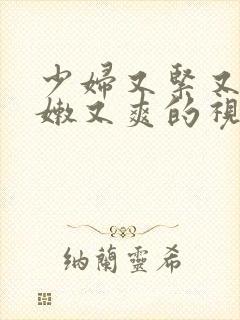 少婦又緊又
嫩又爽的視
納蘭靈希